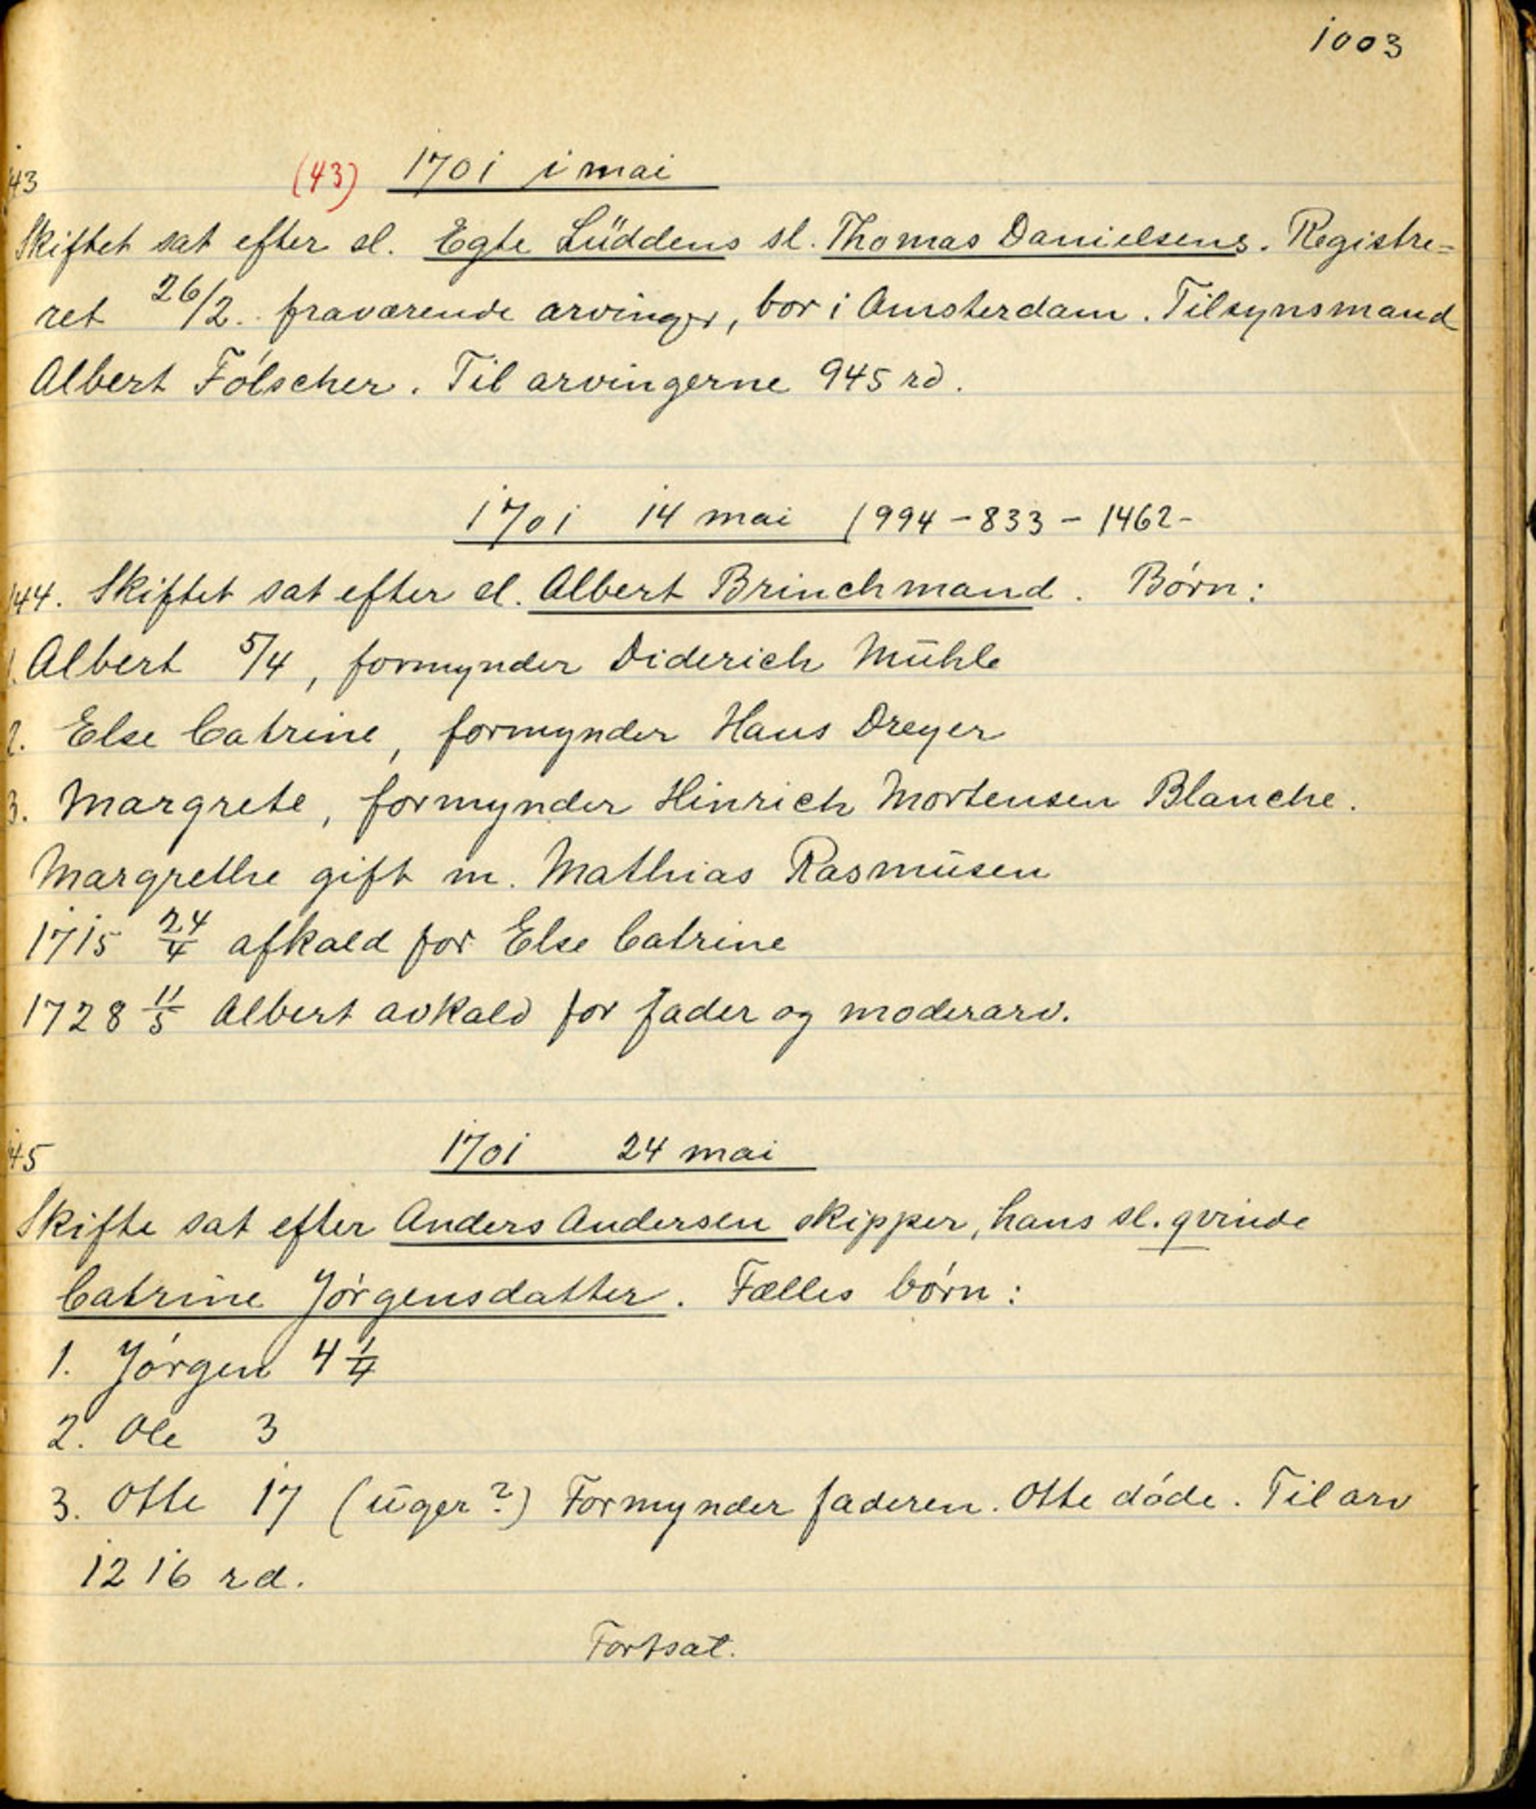 1003
43
(43) 1701 i mai
Skiftet sat efter sl. Egte Lüddens sl. Thomas Danielsens. Registre=
ret 26/2. fraværende arvinger, bor i Amsterdam. Tilsynsmand
Albert Fölscher. Til arvingerne 945 rd.
1701 14 mai (994-833-1462-
44. Skiftet sat efter sl. Albert Brinchmand. Børn:
1. Albert 5/4, formynder Diderich Mühle
2. Else Catrine, formynder Hans Dreyer
3. Margrete, formynder Hinrich Mortensen Blanche.
Margrethe gift m. Mathias Rasmūsen
1715 24/4 afkald for Else Catrine
1728 11/5 Albert avkald for fader og moderarv.
45
1701 24 mai
Skifte sat efter Anders Andersen skipper, hans sl. qvinde
Catrine Jørgensdatter. Fælles børn:
1. Jørgen 4 1/4
2. Ole 3
3. Otte 17 (ūger?) Formynder faderen. Otte døde. Til arv
1216 rd.
Fortsat.